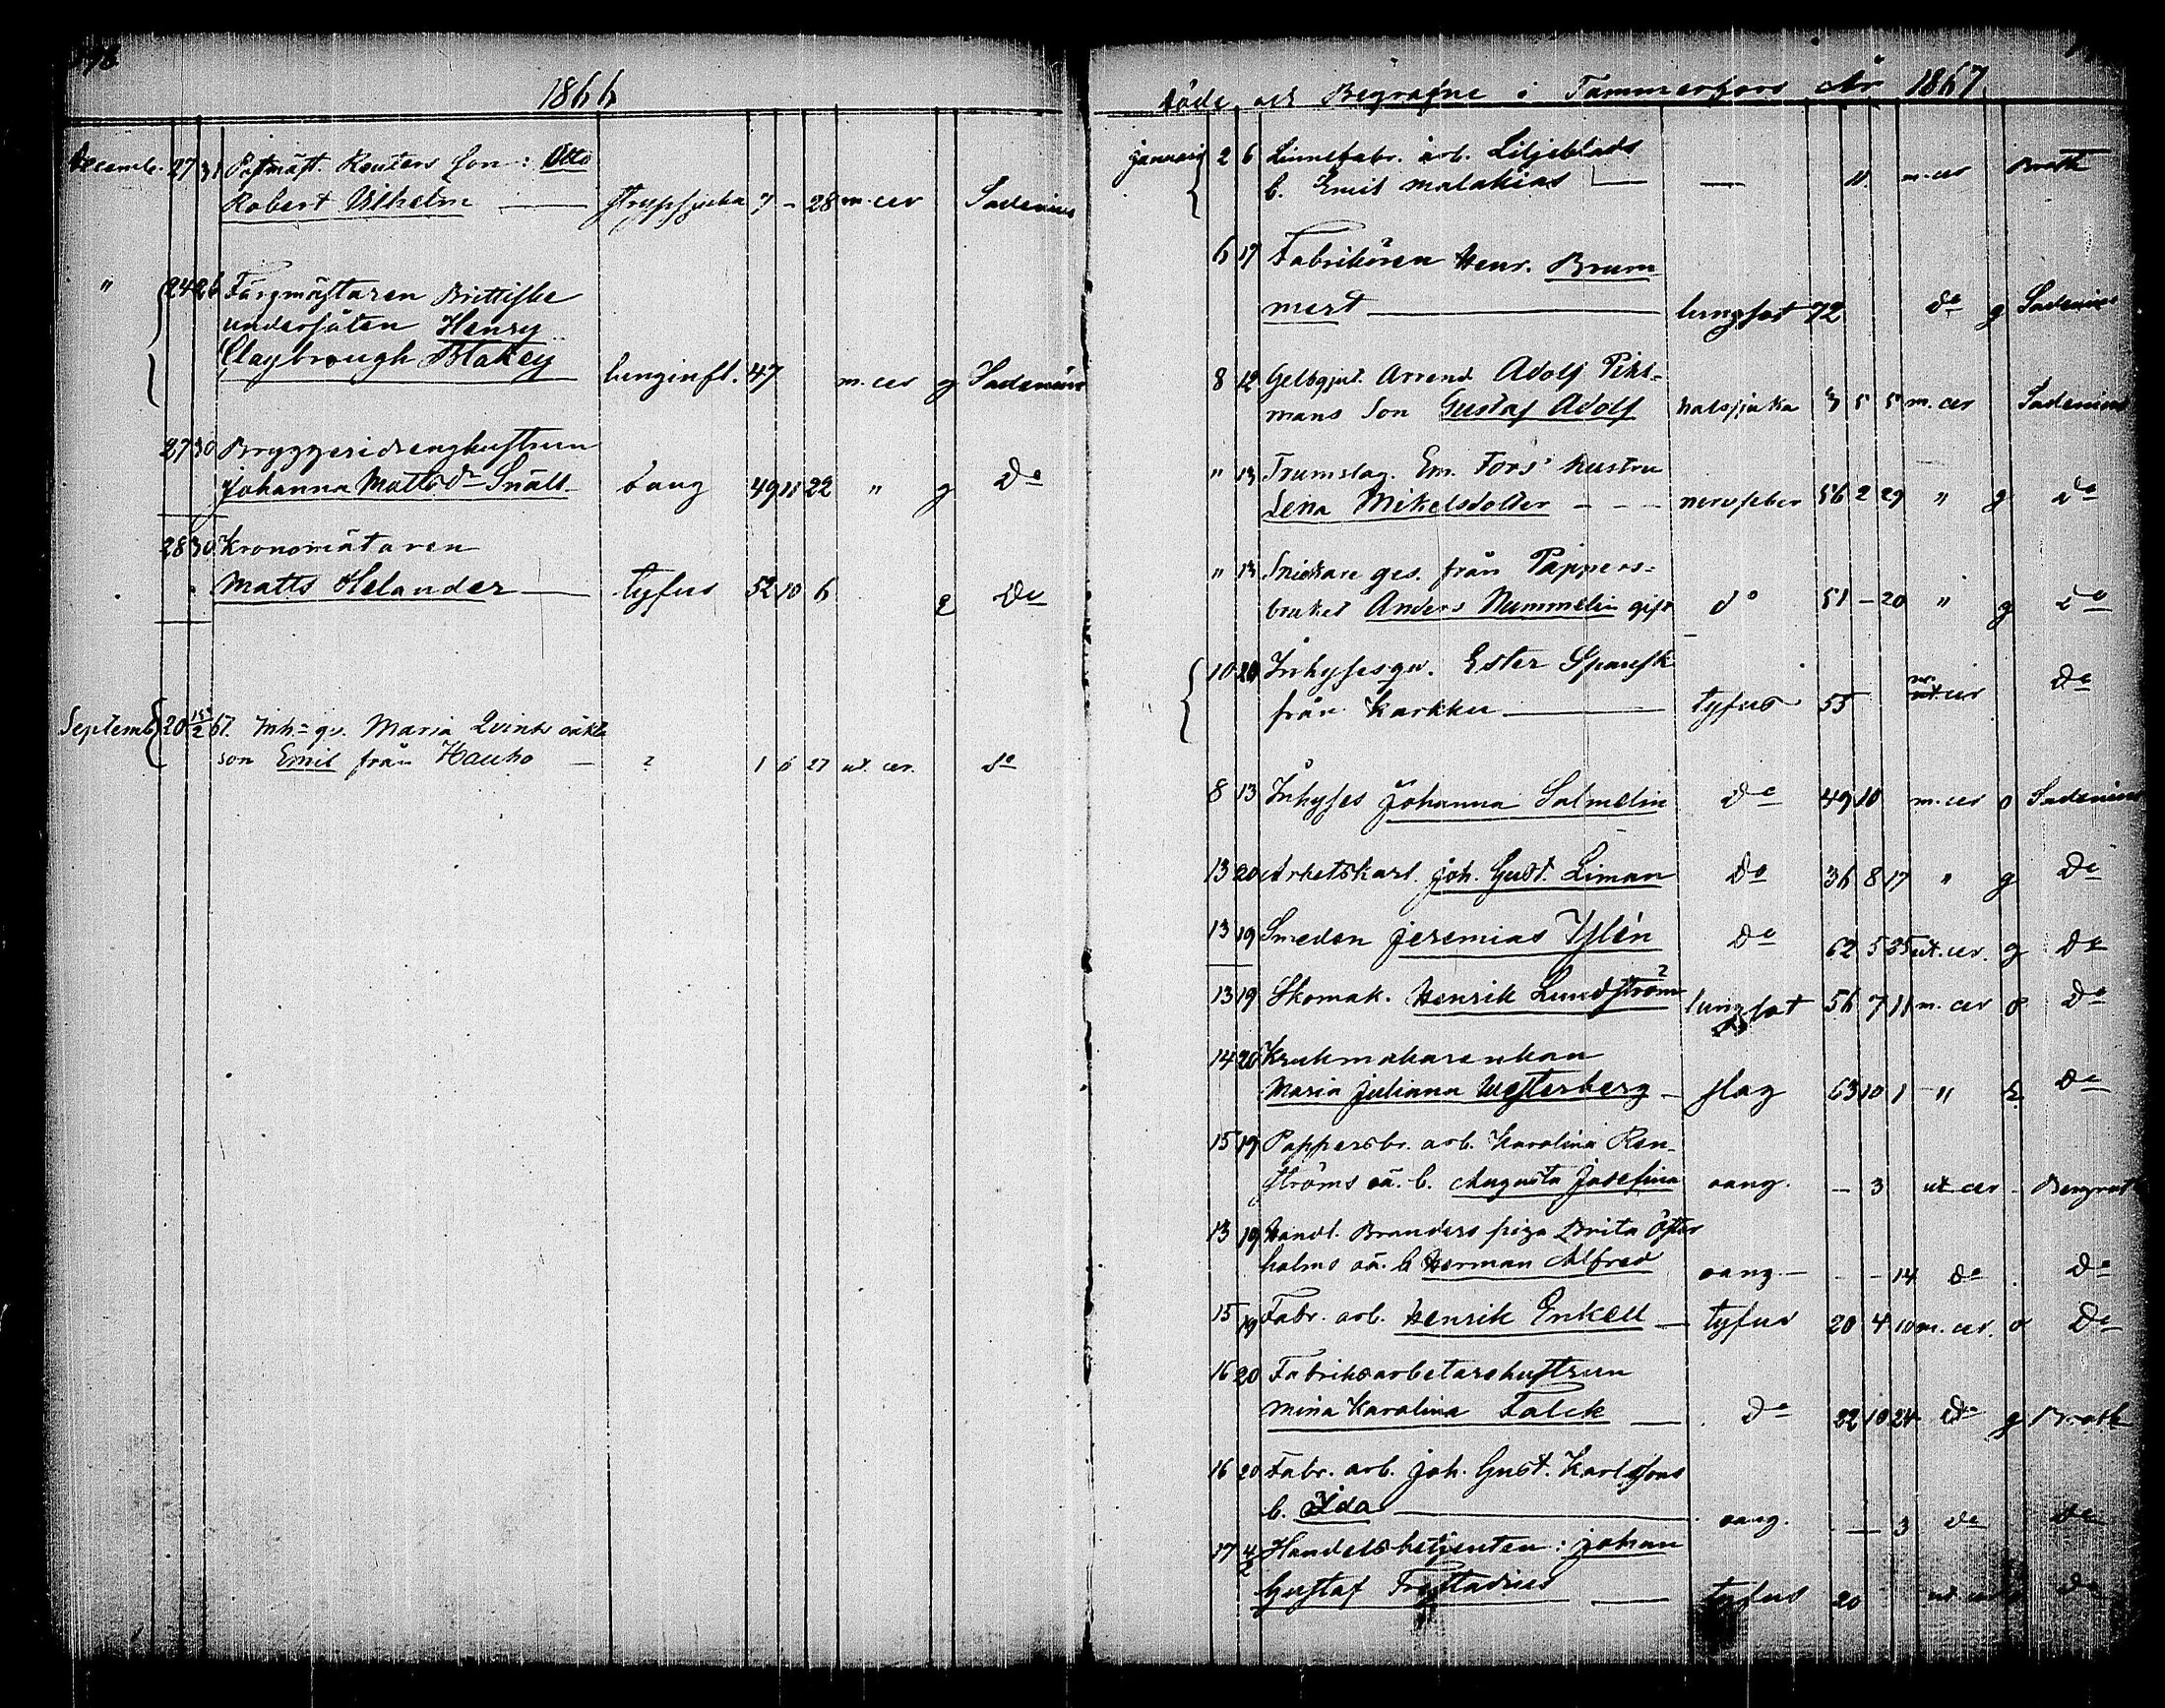 1866
Decemb. 27 31 Postmäst. Reuters son: Otto
Robert Vilhelm — strypsjuka 7 - 28 m. cer Sadenius
" 24 26 Färgmästaren Brittiske
undersåten Henry
Claybrough Blakey lunginfl. 47 m. cer g Sadenius
27 30 Bryggeridrenghustrun
Johanna Mattsdr Snäll 49 11 22 " g Do
28 30 Kronomätaren
Matts Helander — tyfus 52 10 6 Do
Septemb 20 67. Inh=qv. Maria Qvists oäkta
son Emil från Hauho — ? 1 6 27 ut. cer. do
Döde och Begrafne i Tammerfors År 1867
Januari 2 6 Linnefabr. arb. Liljeblads
b. Emil Malakias — — 11 m. cer Brath
6 17 Fabrikören Henr. Brum
mert — lungsot 72 do g Sadenius
8 12 Gelbgjut. Arrend Adolf Pihl=
mans Son Gustaf Adolf halssjuka 3 5 5 m. cer Sadenius
" 13 Trumslag. Em. Fors' hustru
Lena Mikelsdotter - - - nervfeber 56 2 29 " g do
" 13 Snickare ges. från Pappers=
bruket Anders Nummelin gift do 51 - 20 " g do
10 20 Inhysesqv. Ester Spansk
från Karkku — tyfus 55 Do
8 13 Inhyses Johanna Salmelin Do 49 10 m. cer o Sadenius
13 20 Arbetskarl. Joh. Gust. Liman Do 36 8 17 " g Do
13 19 Smeden Jeremias Yslén Do 62 5 25 ut. cer. g Do
13 19 Skomak. Henrik Lundström lungsot 56 7 11 m. cer o Do
14 20 Krukmakarenkan
Maria Juliana Westerberg — slag 63 10 1 " E Do
15 19 Pappersbr. arb. Karolina Ren-
ströms oä. b. Augusta Josefina oang. — 3 ut cer - Bergroth
13 19 Handl. Branders piga Brita Öster
holms oä. b Herman Alfred oang — - - 14 do Do
15 19 Fabr. arb. Henrik Enkell — tyfus 20 4 10 m. cer. o Do
16 20 Fabriksarbetarehustrun
Mina Karolina Falck — Do 22 10 24 do g Brath
16 20 Fabr. arb. Joh. Gust. Karlssons
b. Ida — oang. — 3 do do
17 4/2 Handelsbetjenten: Johan
Gustaf — tyfus 20 Do